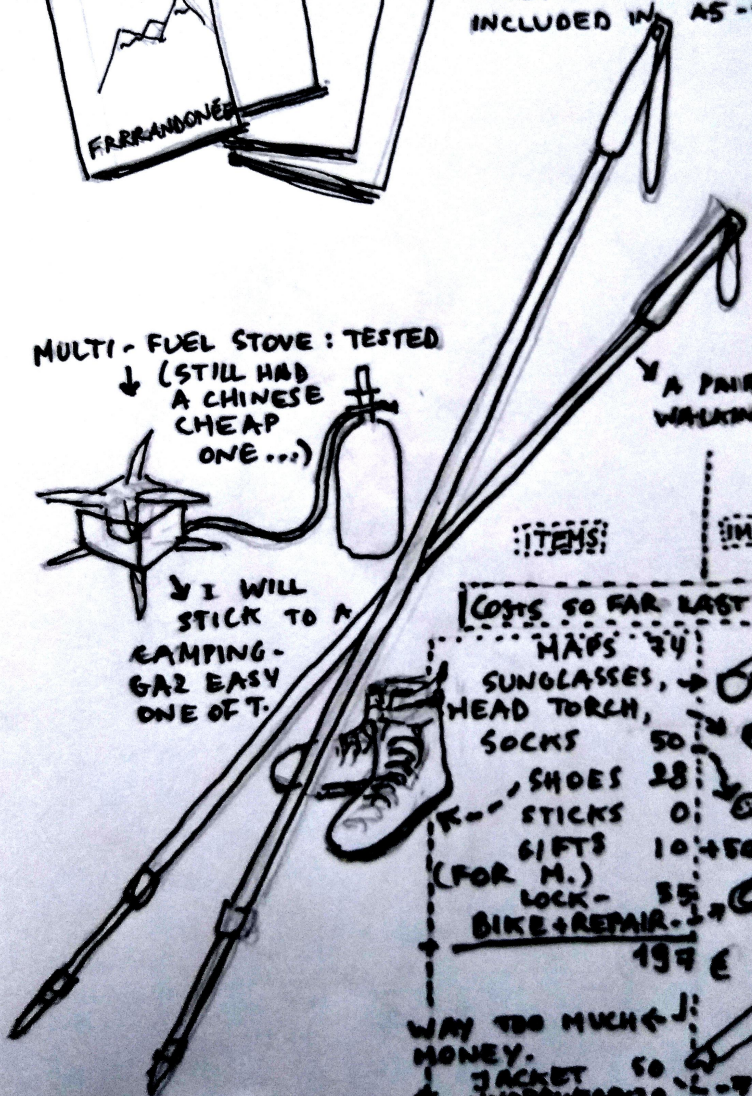 INCLUDED IN A5 -
FRRRANDONÉE
MULTI-FUEL STOVE: TESTED
(STILL HAD
A CHINESE
CHEAP
ONE...)
I WILL
STICK TO A
CAMPING-
GAZ EASY
ONE OF T.
A PAIR
WALKIN
ITEMS
IM
COSTS SO FAR LAST
MAPS 74
SUNGLASSES,
HEAD TORCH,
SOCKS 50
SHOES 28
STICKS 0
GIFTS 10 +50
(FOR M.)
LOCK- 35
BIKE+REPAIR-
197 €
WAY TOO MUCH
MONEY.
JACKET 50